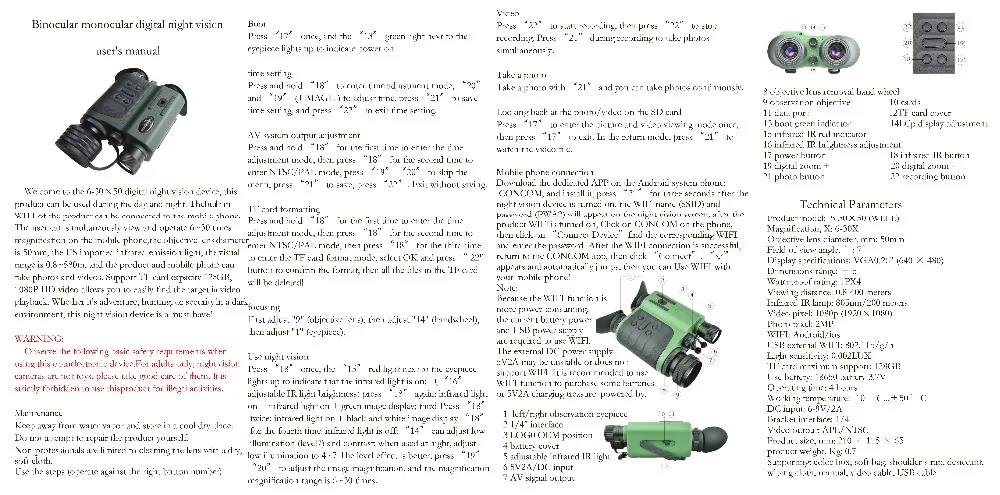 Binocular monocular digital night vision
user's manual
Welcome to the 6-30×50 digital night vision device, this
product can be used during the day and night. The built-in
WIFI of the product can be connected to the mobile phone.
The user can simultaneously view and operate 6-30 times
magnification on the mobile phone,the objective lens diameter
is 50mm, the US imported infrared emission light, the visual
range is 0.8-580m, and the product and mobile phone can
take photos and videos. Support TF card capacity 128GB,
1080P HD video allows you to easily find the target in video
playback. Whether it's adventure, hunting, or security in a dark
environment, this night vision device is a must-have!
WARNING:
Observe the following basic safety requirements when
using this optoelectronic device.For adults only; night vision
cameras are not toys, please take good care of them. It is
strictly forbidden to use thisproduct for illegal activities.
Maintenance
Keep away from water vapor and store in a cool dry place.
Do not attempt to repair the product yourself.
Non-professionals are limited to cleaning the lens with a dry,
soft cloth.
Use the steps (operate against the right button number)
Boot
Press "17" once, and the "13" green light next to the
eyepiece lights up to indicate power on
time setting
Press and hold "18" to enter time adjustment mode, "20"
and "19" (IMAGE1) to adjust time, press "21" to save
time setting, and press "22" to exit time setting.
AV system output adjustment
Press and hold "18" for the first time to enter the time
adjustment mode, then press "18" for the second time to
enter NTSC/PAL mode, press "19" "20" to skip the
menu, press "21" to save, press "22". Exit without saving.
TF card formatting
Press and hold "18" for the first time to enter the time
adjustment mode, then press "18" for the second time to
enter NTSC/PAL mode, then press "18" for the third time
to enter the TF card format mode, select OK and press "22"
button to confirm the format, then all the files in the TF card
will be deleted!
focusing
First adjust "9" (objective lens), then adjust "14" (handwheel),
then adjust "1" (eyepiece).
Use night vision
Press "18" once, the "15" red light next to the eyepiece
lights up to indicate that the infrared light is on; "16"
adjustable IR light brightness; press "18" again infrared light
on infrared light on green image display; third Press "18"
twice: infrared light on black and white image display "18"
for the fourth time: infrared light is off; "14" can adjust low
illumination (level7) and contrast when used at night, adjust
low illumination to 4-7 The level effect is better; press "19"
"20" to adjust the image magnification, and the magnification
magnification range is 6-30 times.
Video
Press "22" to start recording, then press "22" to stop
recording. Press "21" during recording to take photos
simultaneously.
Take a photo
Take a photo with "21" and you can take photos continuously.
Looking back at the photo/video on the SD card
Press "17" to enter the picture and video viewing mode once,
then press "17" to exit. In the return mode, press "21" to
watch the video file.
Mobile phone connection
Download the dedicated APP on the Android system phone:
ICONCOM, and install it, press for three seconds after the
night vision device is turned on, the WIFI name (SSID) and
password (PWA2) will appear on the night vision screen, after the
product WIFI is turned on, Click on CONCOM on the phone,
then click on "Connect Device" find the corresponding WIFI
and enter the password. After the WIFI connection is successful,
return to the CONCOM app, then click "Connect", "√"
appears and automatically jumps, then you can Use WIFI with
your mobile phone!
Note:
Because the WIFI function is
more power consuming,
the current battery power
and USB power supply
are required to use WIFI.
The external DC power supply
6V2A may be unstable or does not
support WIFI. It is recommended to use
WIFI function to purchase some batteries
or 5V2A charging treasure. powered by.
1 left/right observation eyepiece
2 1/4" interface
3 LOGO OEM position
4 battery cover
5 adjustable infrared IR light
6 5V2A/DC input
7 AV signal output
8 objective lens removal hand wheel
9 observation objective 10 cards
11 data port 12TF card cover
13 boot green indicator 14LCp display adjustment
15 infrared IR red indicator
16 infrared IR brightness adjustment
17 power button 18 infrared IR button
19 digital zoom + 20 digital zoom -
21 photo button 22 recording button
Technical Parameters
Product model: 5-30X50 (WIFI)
Magnification, X: 6-30X
Objective lens diameter, mm: 50mm
Field of view angle,
Display specifications: VGA0.2C" (640 × 480)
Dimensions range:
Waterproof rating: IPX4
Viewing distance: 0.8-400 meters
Infrared IR lamp: 805nm/200 meters
Video pixel: 1080p (1920×1080)
Photo pixel: 2MP
WIFI: Android/ios
USB external WIFI: 802.11b/g/n
Light sensitivity: 0.002LUX
TF card maximum support: 128GB
Use battery: 18650 battery 3.7V
Operating time: 4 hours
Working temperature: -10°C...+50°C
DC input: 6-9V/2A
Bracket interface: 1/4
Video output: APL/NTSC
Product size, mm: 210 × 115 × 65
product weight, Kg: 0.7
Supporting: color box, soft bag, shoulder strap, desiccant,
wiping cloth, manual, video cable, USB cable